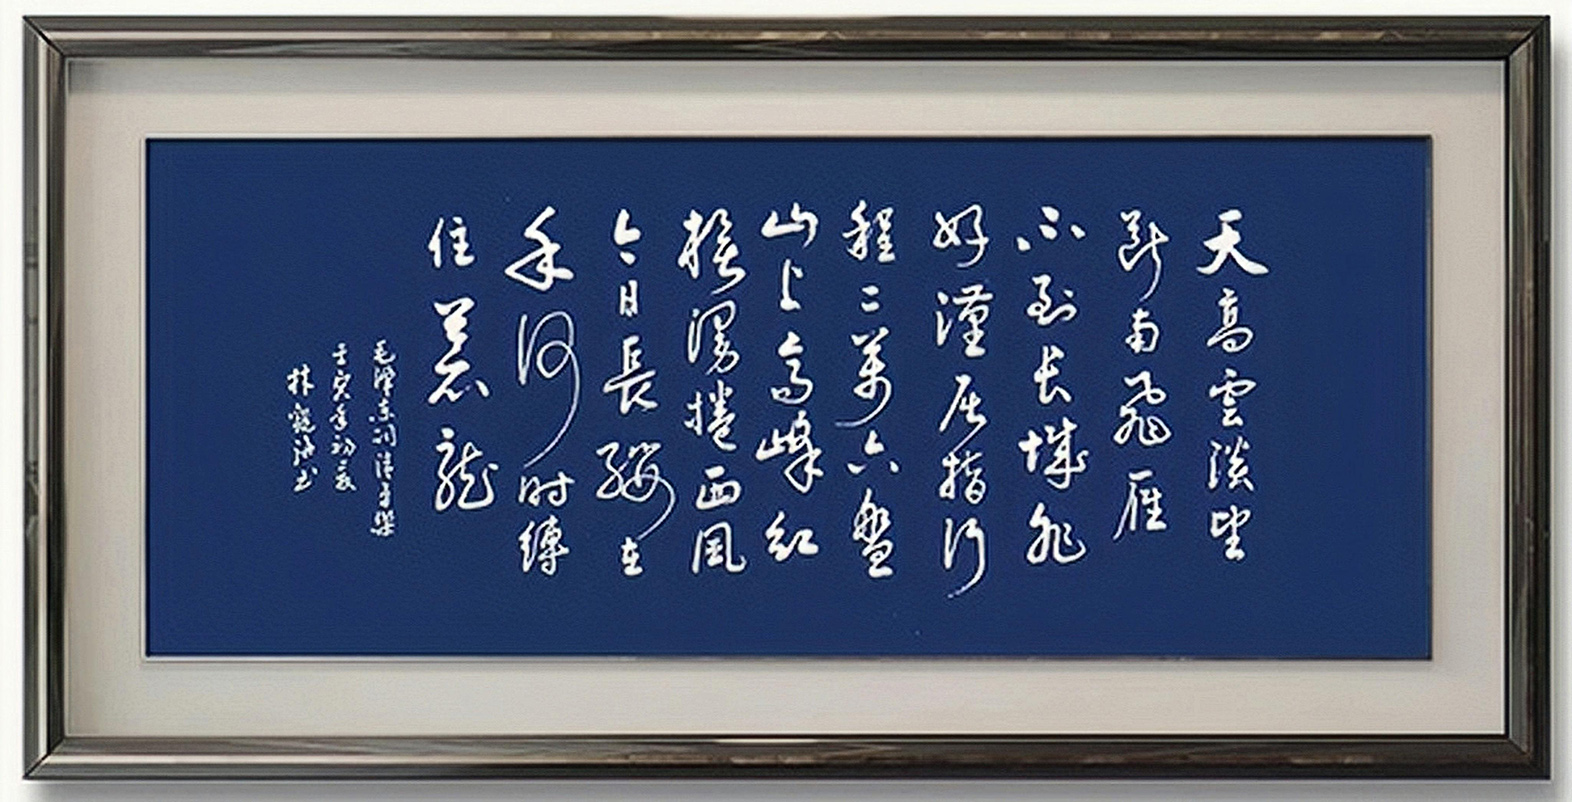 天高雲淡望
斷南飛雁
不到长城非
好漢屈指行
程二萬六盤
山上高峰紅
旗漫捲西風
今日長纓在
手何时縛
住蒼龍
毛澤東词清平樂
壬寅年初夏
林海书